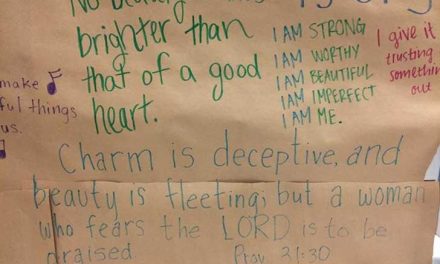 No beauty
brighter than
that of a good
heart.
I AM STRONG
I AM WORTHY
I AM BEAUTIFUL
I AM IMPERFECT
I AM ME.
I give it
trusting
something
out
make
ful things
us.
Charm is deceptive, and
beauty is fleeting; but a woman
who fears the LORD is to be
praised Prov. 31:30